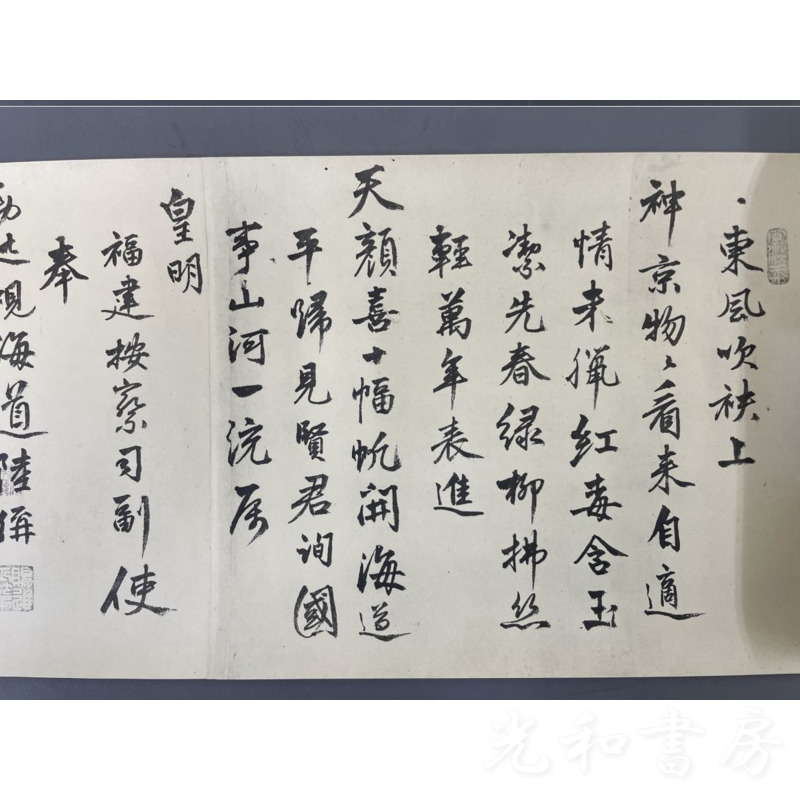 東風吹袂上
神京物々看来自適
情未臘紅含玉
潔先春緑柳拂絲
輕萬年表進
天顔喜十幅帆開海道
平歸見賢君詢國
事山河一統属
皇明
福建按察司副使
奉
勅巡視海道陸偁
光和書房